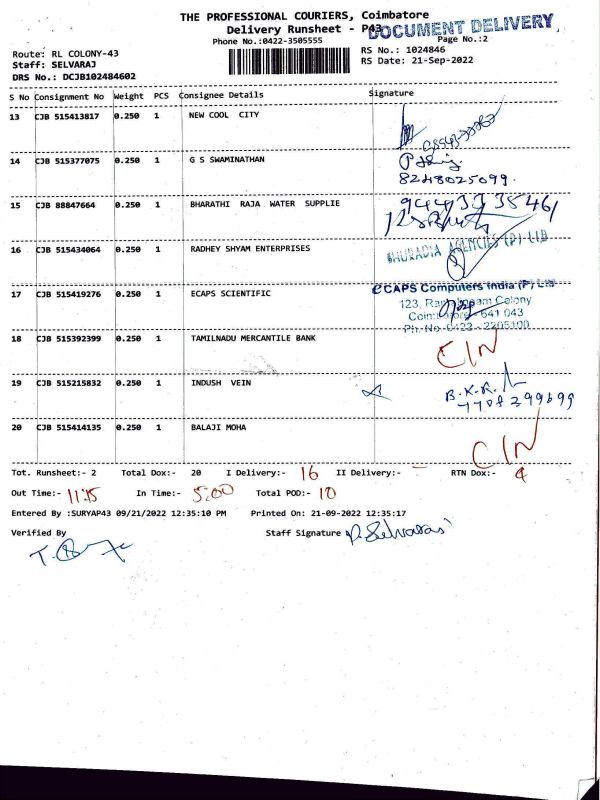 THE PROFESSIONAL COURIERS, Coimbatore
Delivery Runsheet - P43
DOCUMENT DELIVERY
Phone No.:0422-3505555
Page No.:2
Route: RL COLONY-43
RS No.: 1024846
Staff: SELVARAJ
RS Date: 21-Sep-2022
DRS No.: DCJB102484602
S No Consignment No Weight PCS Consignee Details Signature
13 CJB 515413817 0.250 1 NEW COOL CITY
14 CJB 515377075 0.250 1 G S SWAMINATHAN
8248025099.
15 CJB 88847664 0.250 1 BHARATHI RAJA WATER SUPPLIE
16 CJB 515434064 0.250 1 RADHEY SHYAM ENTERPRISES
BHURADIA AGENCIES (P) LTD
17 CJB 515419276 0.250 1 ECAPS SCIENTIFIC
ECAPS Computers India (P) Ltd
123, Colony
641 043
Ph. No 0422 - 2205100
18 CJB 515392399 0.250 1 TAMILNADU MERCANTILE BANK
CIN
19 CJB 515215832 0.250 1 INDUSH VEIN
B.K.R.
20 CJB 515414135 0.250 1 BALAJI MOHA
CIN
Tot. Runsheet:- 2 Total Dox:- 20 I Delivery:- 16 II Delivery:- - RTN Dox:- 4
Out Time:- 11:15 In Time:- 5:00 Total POD:- 10
Entered By :SURYAP43 09/21/2022 12:35:10 PM Printed On: 21-09-2022 12:35:17
Verified By Staff Signature P. Selvaraj